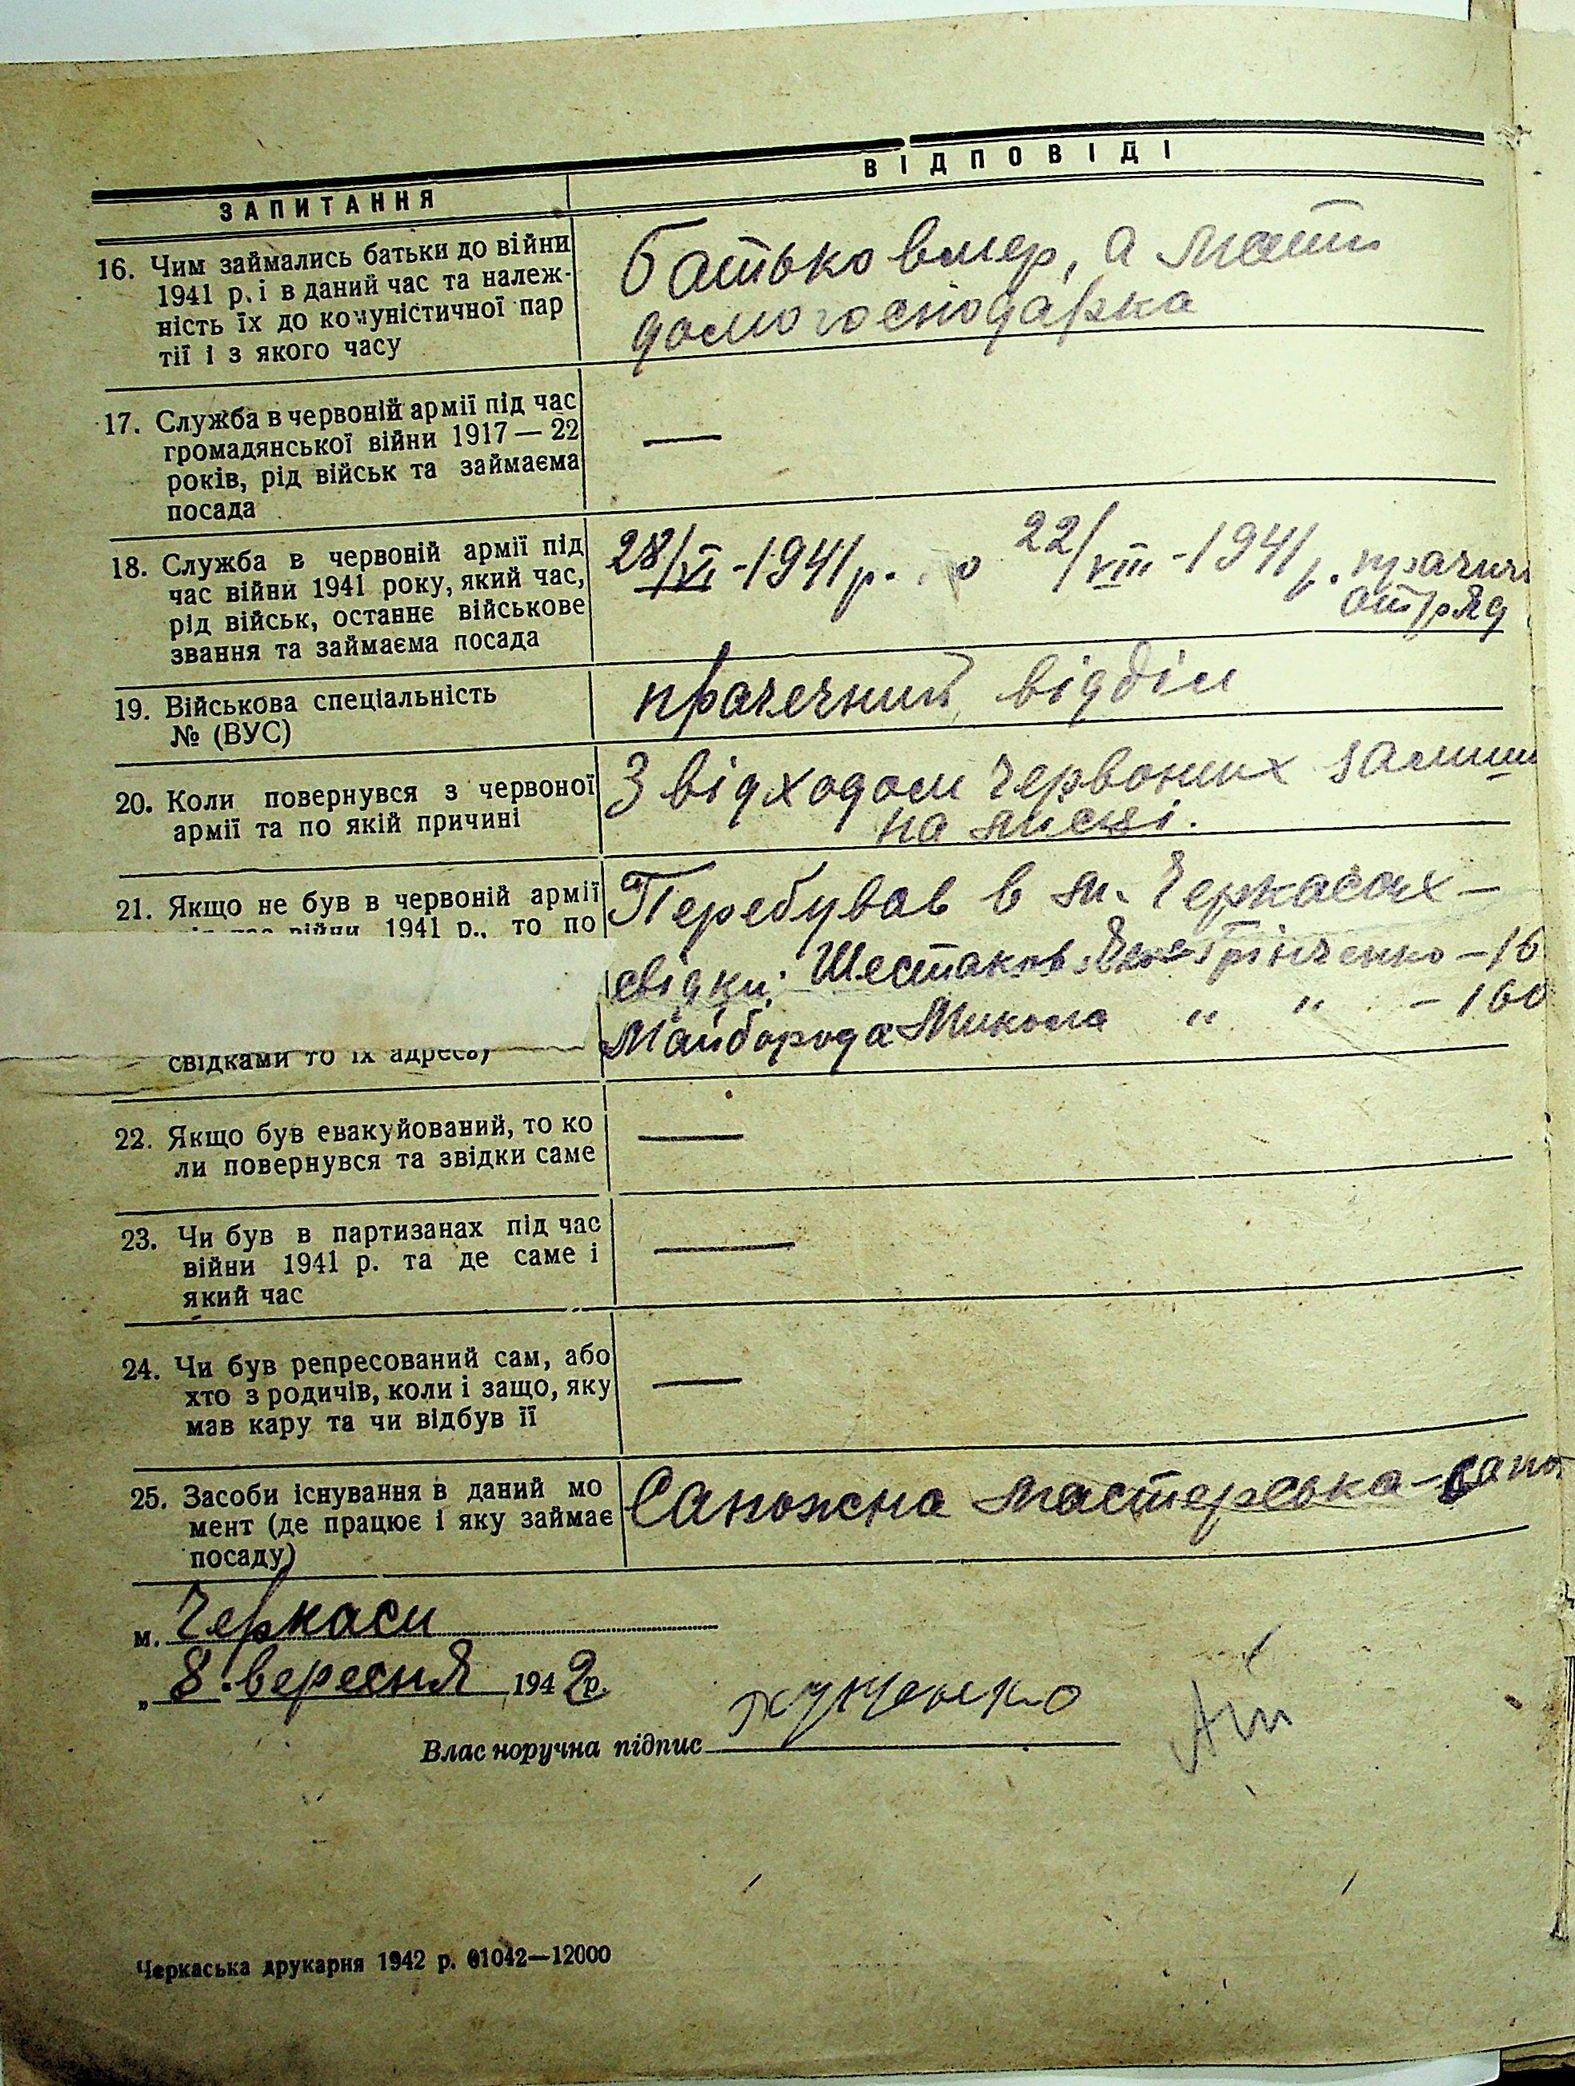 ЗАПИТАННЯ
ВІДПОВІДІ
16. Чим займались батьки до війни
1941 р. і в даний час та належ-
ність їх до комуністичної пар
тії і з якого часу
Батько вмер, а мати
домогосподарка
17. Служба в червоній армії під час
громадянської війни 1917 — 22
років, рід військ та займаєма
посада
—
18. Служба в червоній армії під
час війни 1941 року, який час,
рід військ, останнє військове
звання та займаєма посада
28/VI - 1941 р. по 22/VIII - 1941 р. прачечн
отряд
19. Військова спеціальність
№ (ВУС)
прачечний відділ
20. Коли повернувся з червоної
армії та по якій причині
З відходом червоних залиши
на місці.
21. Якщо не був в червоній армії
під час війни 1941 р., то по
свідками то їх адресь)
Перебував в м. Черкасах —
свідки: Шестаков Грінченко — 16
Майборода Микола " " — 160
22. Якщо був евакуйований, то ко
ли повернувся та звідки саме
—
23. Чи був в партизанах під час
війни 1941 р. та де саме і
який час
—
24. Чи був репресований сам, або
хто з родичів, коли і защо, яку
мав кару та чи відбув її
—
25. Засоби існування в даний мо
мент (де працює і яку займає
посаду)
Сапожна мастерська — сапо
м. Черкаси
„ 8 . вересня 1942 р.
Власноручна підпис
Черкаська друкарня 1942 р. 01042—12000